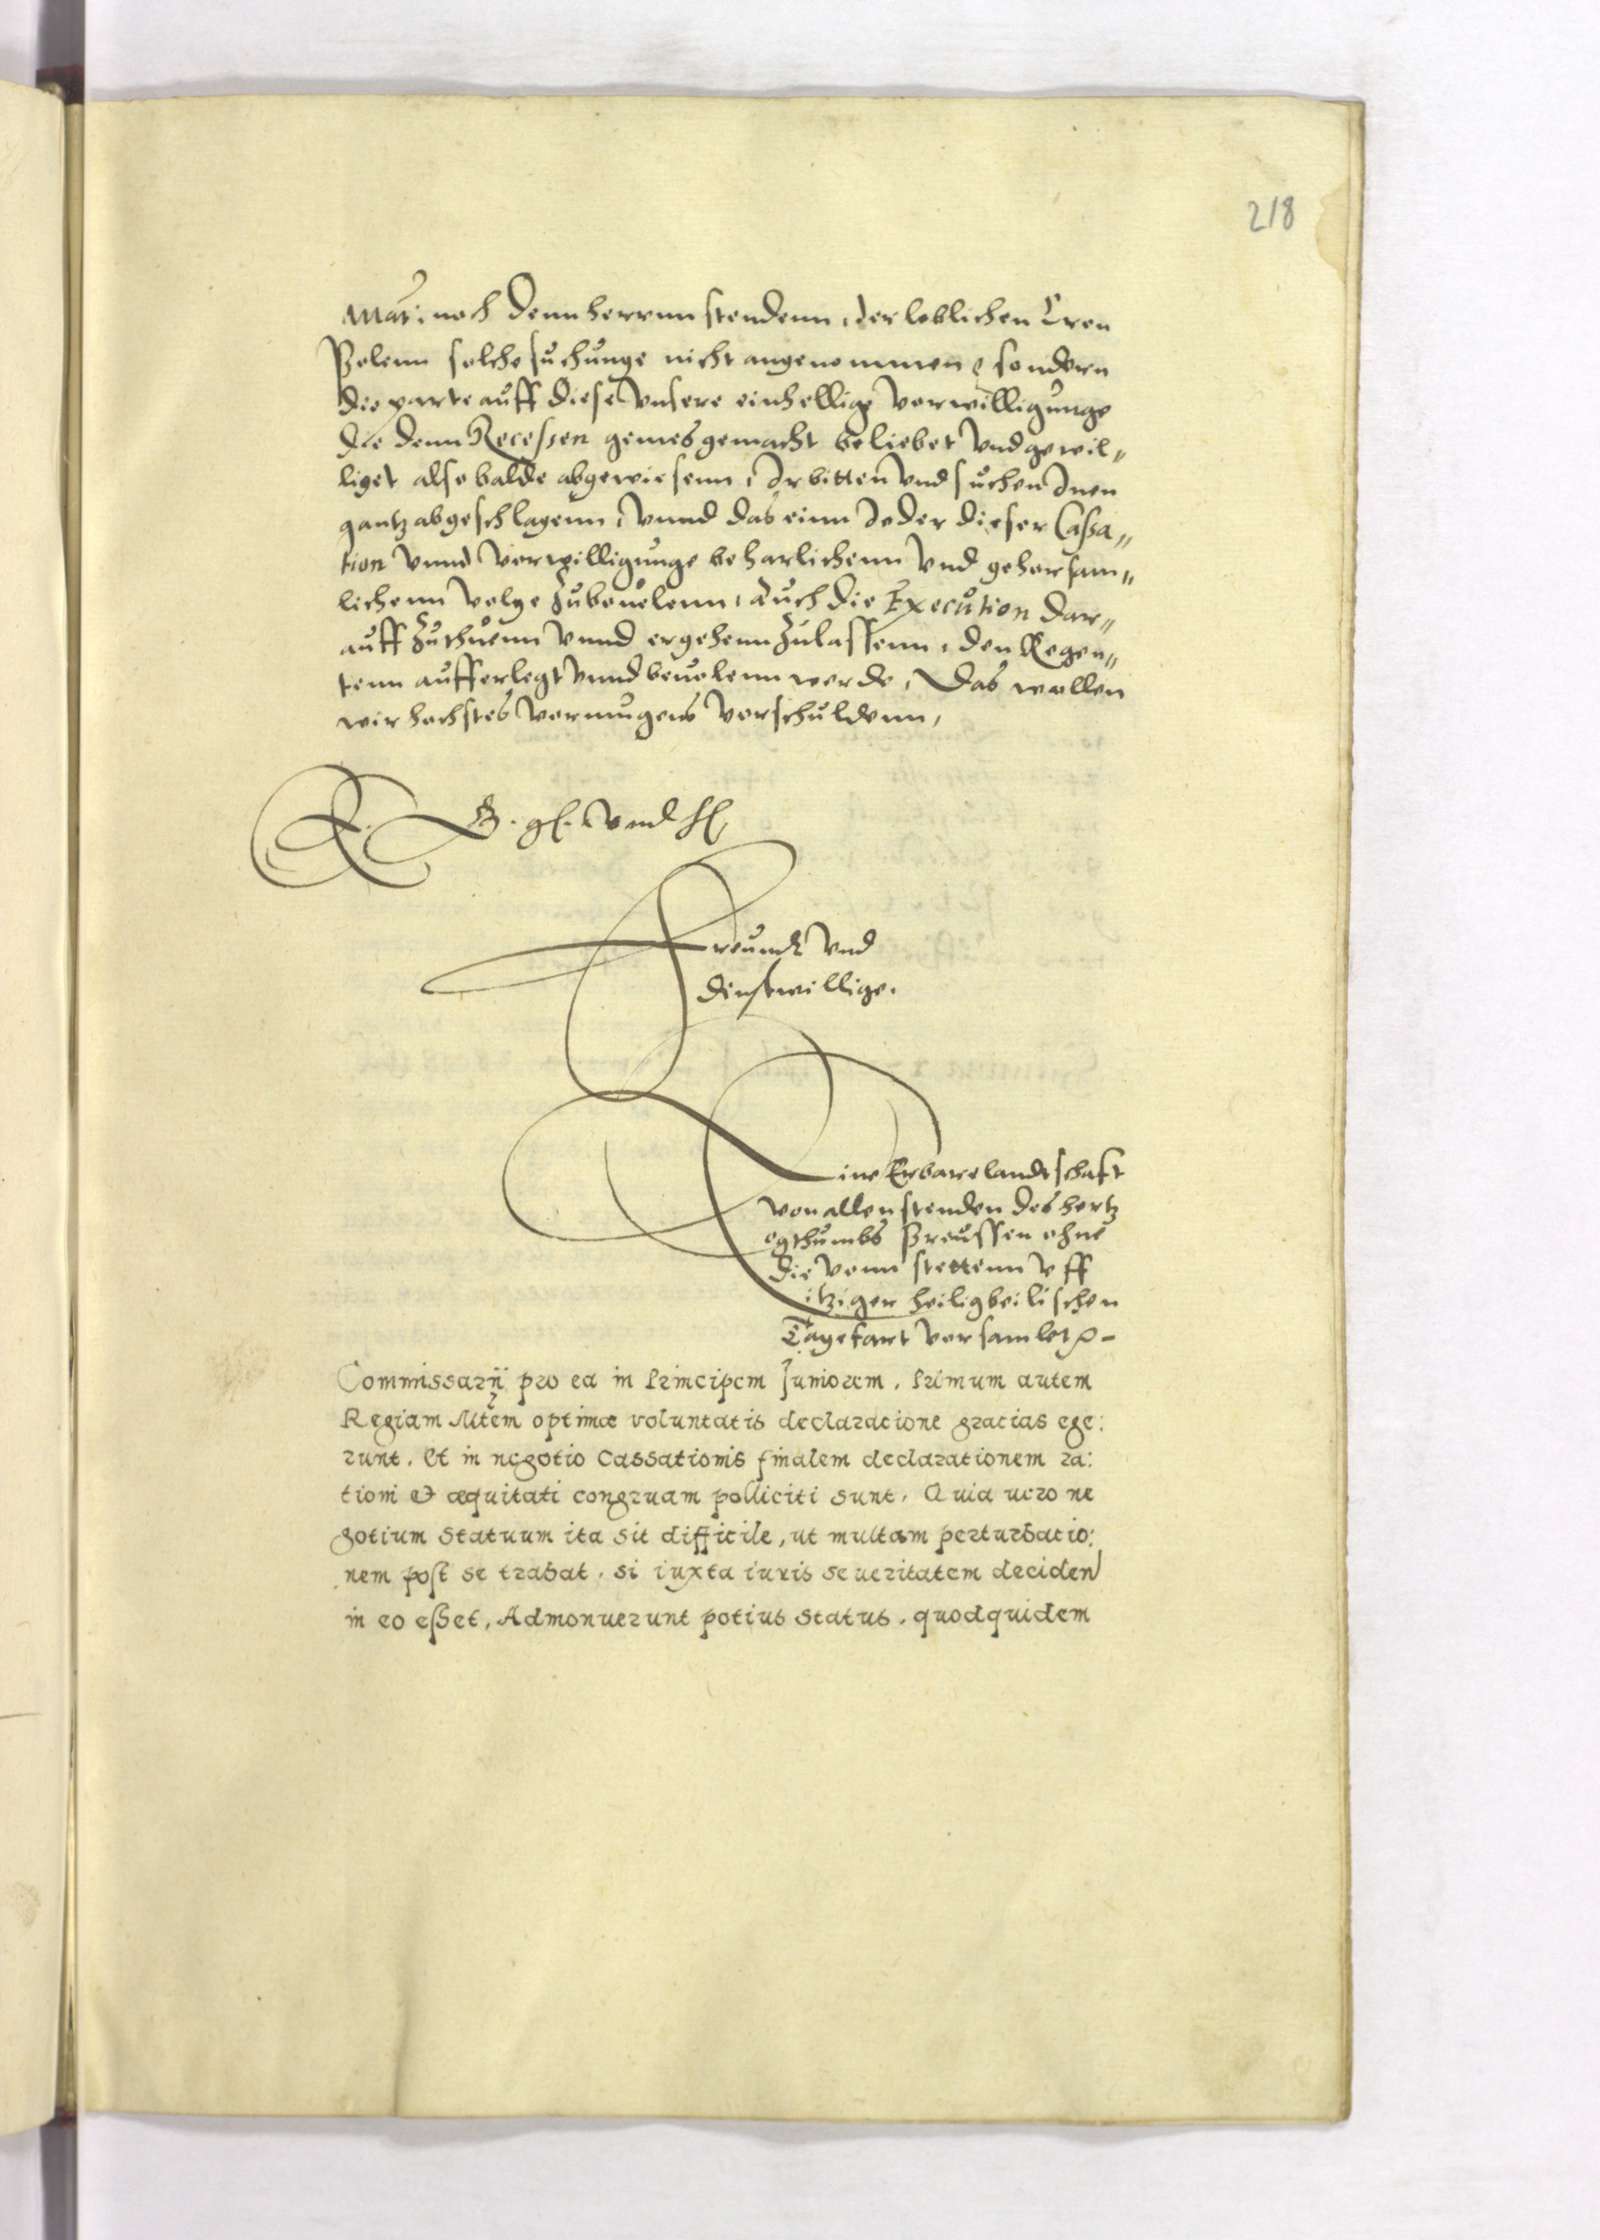 218
Mat: noch denn herrnn stendenn, der loblichen Cron
Polenn solche suchunge nicht angenommen, sondern
die parte auff diese Vnsere einhellige Verwilligunge
die denn Recessen gemes gemacht beliebet Vnd gewil„
liget also balde abgewiesenn, Ir bitten Vnd suchen Inen
gantz abgeschlagenn, Vnnd das einn Jeder dieser Cassa„
tion Vnnd Verwilligunge beharlichenn Vnd gehorsam„
lichenn Volge Zubeuelenn, Auch die Execution dar„
auff Zuthuenn Vnnd ergehenn Zulassenn, den Regen„
tenn aufferlegt Vnnd beuolenn werde, Das wollen
wir hochstes Vermugens Verschuldenn,
E. G. gl. Vnd hl,
Freundt Vnd
dinstwillige.
Eine Erbare landtschaft
von allen stenden des hertz
ogthumbs Preussen ohne
die vonn stettenn vff
itziger heiligbeilischen
Tagefart Versamlet
Commissarij pro ea in Principem Juniorem. Primum autem
Regiam Mtem optimæ voluntatis declaratione gratias ege:
runt. Et in negotio Cassationis finalem declarationem ra:
tioni & æquitati congruam polliciti sunt. Quia uero ne
gotium statuum ita sit difficile, ut multam perturbatio:
nem post se trahat, si iuxta iuris seueritatem deciden
in eo esset, Admonuerunt potius status, quod quidem